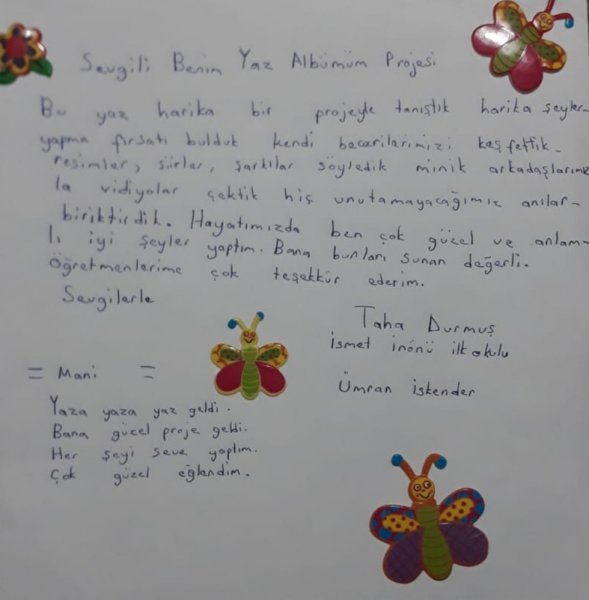 Sevgili Benim Yaz Albümüm Projesi
Bu yaz harika bir projeyle tanıştık harika şeyler
yapma fırsatı bulduk kendi becerilerimizi keşfettik.
resimler, şiirler, şarkılar söyledik minik arkadaşlarımız
la vidiyolar çektik hiç unutamayacağımız anılar
biriktirdik. Hayatımızda ben çok güzel ve anlam-
lı iyi şeyler yaptım. Bana bunları sunan değerli.
Öğretmenlerime çok teşekkür ederim.
Sevgilerle
Taha Durmuş
ismet inönü ilkokulu
Ümran iskender
= Mani =
Yaza yaza yaz geldi.
Bana güzel proje geldi.
Her şeyi seve yaptım.
Çok güzel eğlendim.